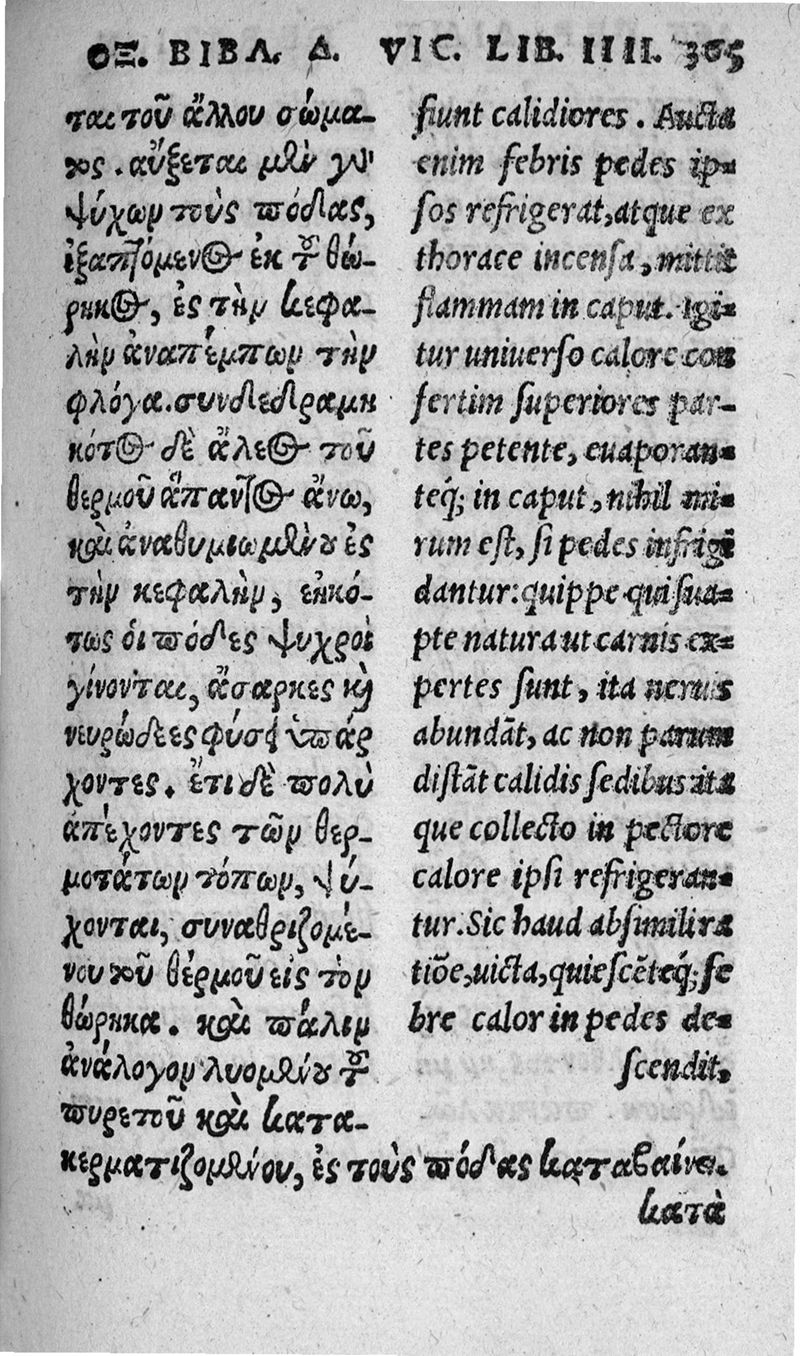 ΟΞ. ΒΙΒΛ. Δ. VIC. LIB. IIII. 305
ται τοῦ ἄλλου σώμα-
τος. αὔξεται μὲν γὰρ
ψύχων τοὺς πόδας,
ἐξαπτόμενος ἐκ τοῦ θώ-
ρηκος, ἐς τὴν κεφα-
λὴν ἀναπέμπων τὴν
φλόγα. συνδεδραμη
κότος δὲ ἀλέος τοῦ
θερμοῦ ἅπαντος ἄνω,
καὶ ἀναθυμιωμένου ἐς
τὴν κεφαλὴν, εἰκό-
τως οἱ πόδες ψυχροὶ
γίνονται, ἄσαρκες καὶ
νευρώδεες φύσει ὑπάρ
χοντες. ἔτι δὲ πολὺ
ἀπέχοντες τῶν θερ-
μοτάτων τόπων, ψύ-
χονται, συναθριζομέ-
νου τοῦ θέρμοῦ εἰς τὸν
θώρηκα. καὶ πάλιν
ἀνάλογον λυομένου τοῦ
πυρετοῦ καὶ κατα-
κερματιζομένου, ἐς τοὺς πόδας καταβαίνει.
κατὰ
fiunt calidiores. Aucta
enim febris pedes ip-
sos refrigerat, atque ex
thorace incensa, mittit
flammam in caput. Igi-
tur uniuerso calore con
fertim superiores par-
tes petente, euaporan-
teq́; in caput, nihil mi-
rum est, si pedes infrigi
dantur: quippe qui sua-
pte natura ut carnis ex-
pertes sunt, ita neruis
abundāt, ac non parum
distāt calidis sedibus ita
que collecto in pectore
calore ipsi refrigeran-
tur. Sic haud absimili ra
tiōe, uicta, quiescēteq́; fe
bre calor in pedes de-
scendit.